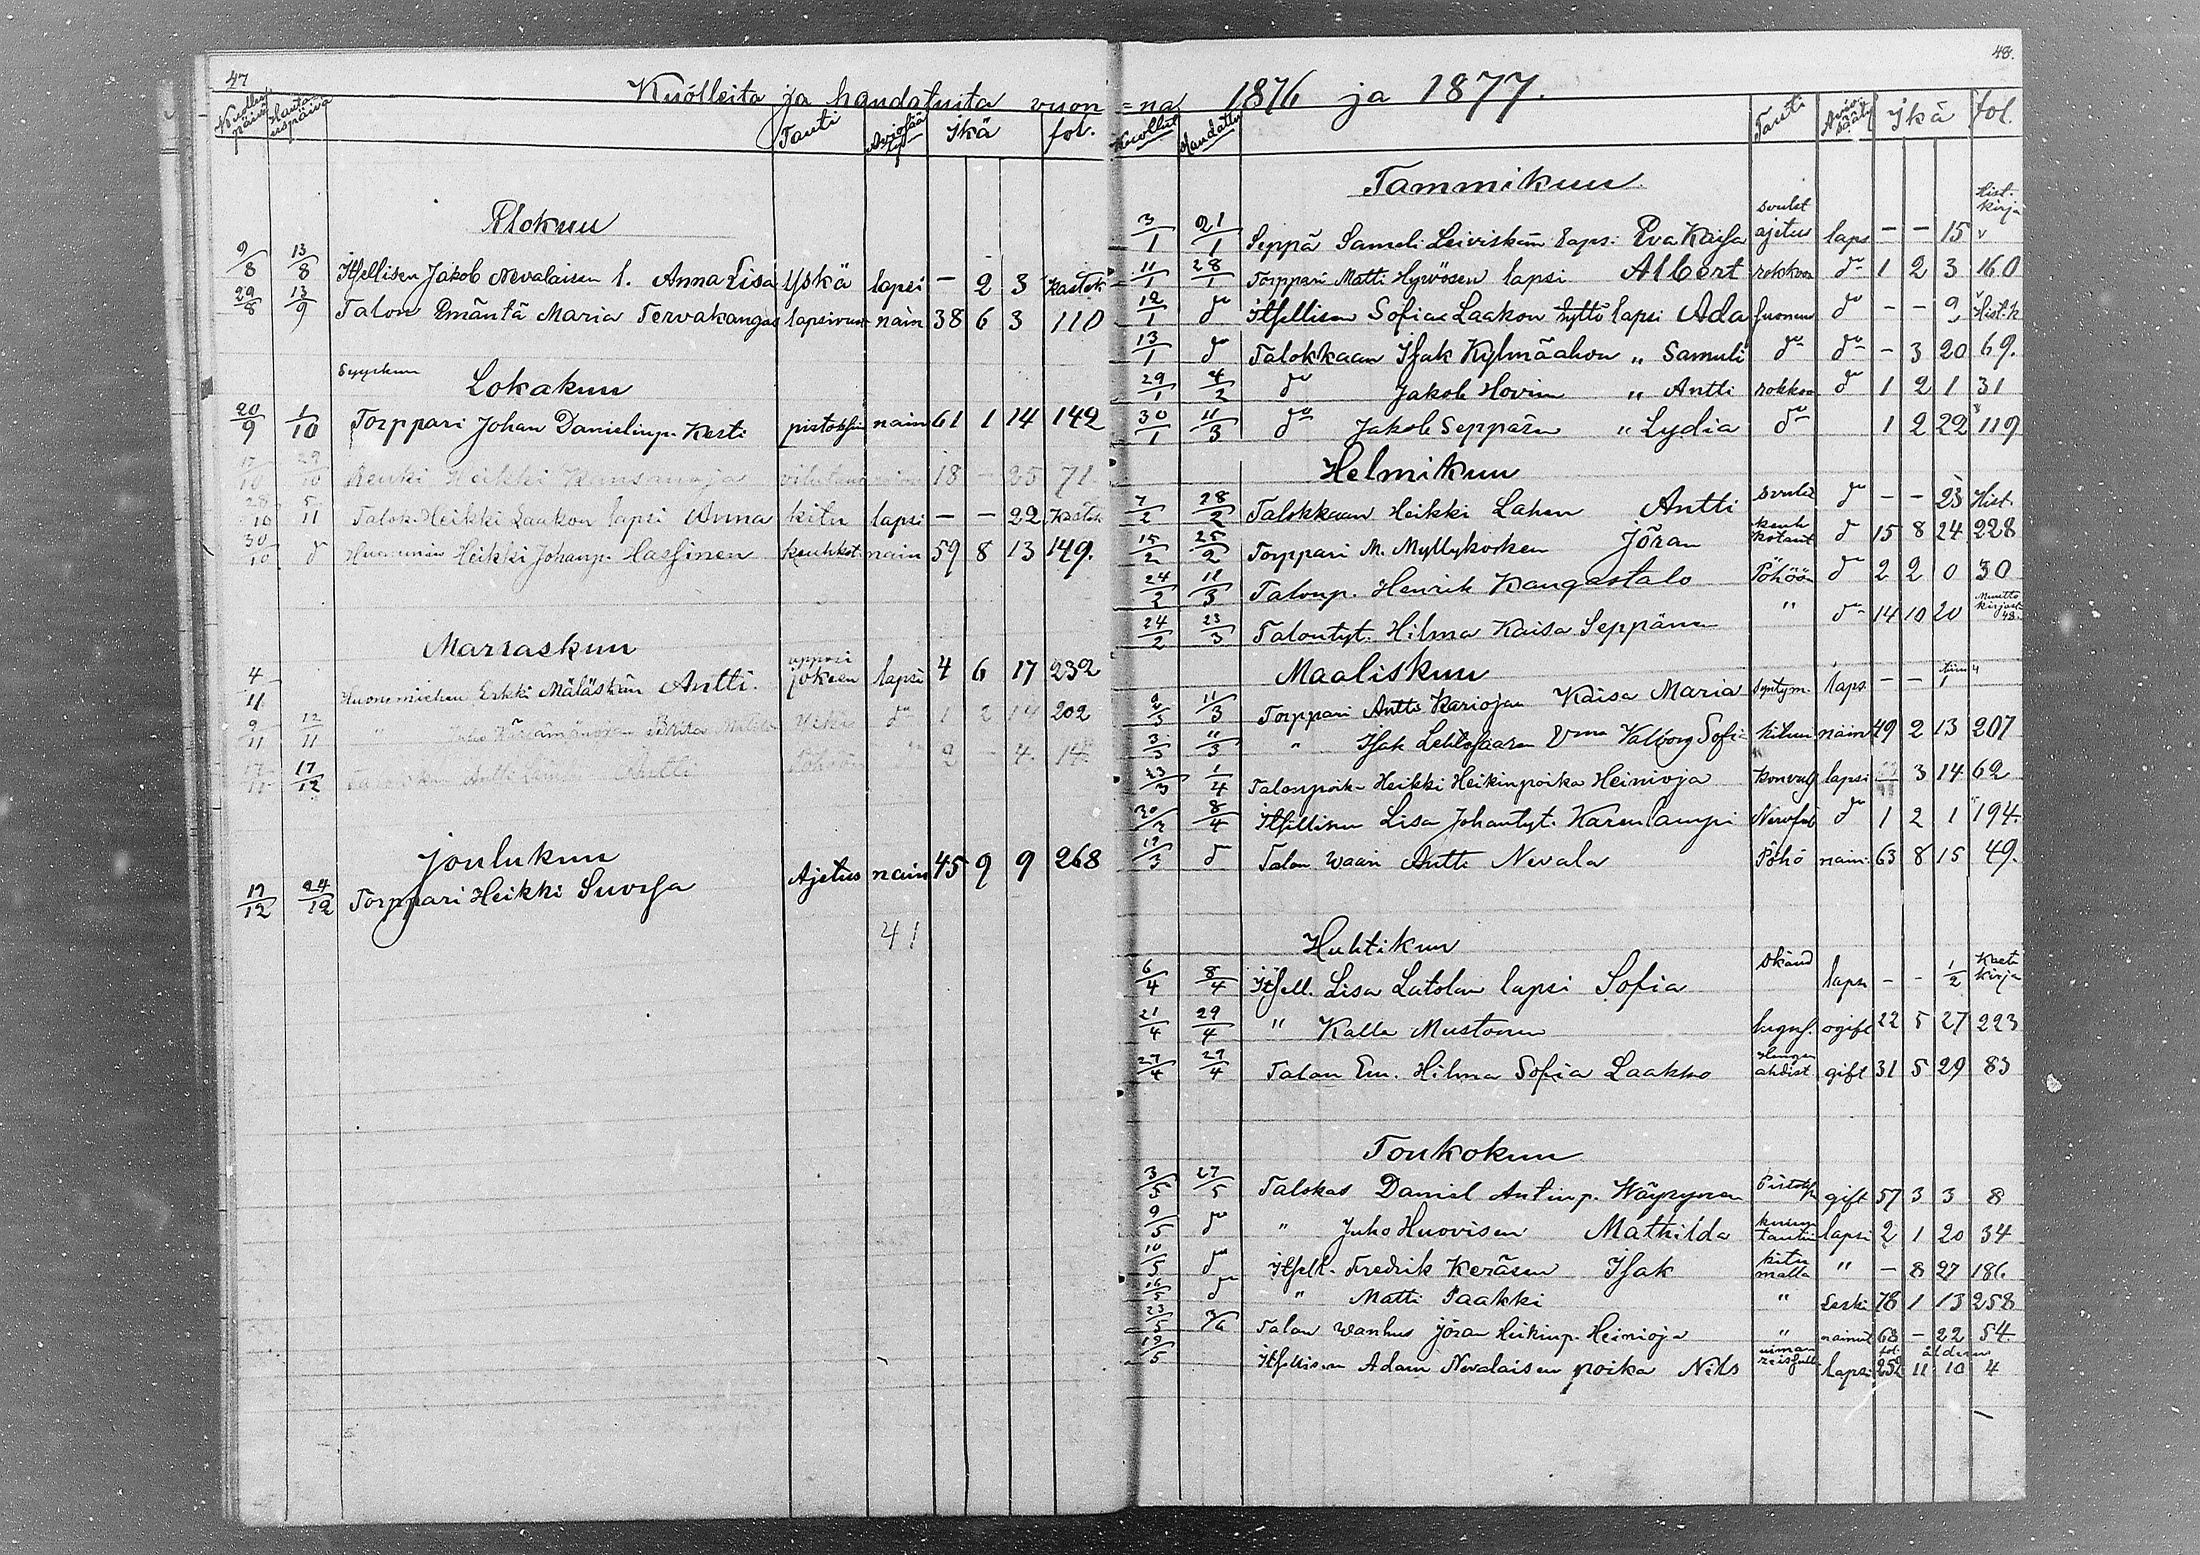 47
Kuolleita ja haudatuita vuon
Kuollut päivä Hautauspäivä Tauti Aviosääty Ikä fol.
Elokuu
9/8 13/8 Itsellisen Jakob Nevalaisen l. Anna Lisa Yskä lapsi – 2 3 Kastek
29/8 13/9 Talon Emäntä Maria Tervakangas lapsivuo nain 38 6 3 110
Syyskuu
Lokakuu
20/9 1/10 Torppari Johan Danielinp. Kesti pistoksii nain 61 1 14 149
17/10 29/10 Renki Heikki Kansanoja 18 – 25 71
28/10 5/11 Talok. Heikki Laakon lapsi Anna kitu lapsi – – 22 Kastek
30/10 d Huonemies Heikki Johanp. Hassinen keuhkot. nain 59 8 13 149.
Marraskuu
4/11 Huonemiehen Erkki Mäläskän Antti. upposi jokeen lapsi 4 6 17 232
9/11 12/11 " Brita d:o 1 2 14 202
17/11 17/12 Antti Antti Pöhöön " 2 – 4 14
Joulukuu
17/12 24/12 Torppari Heikki Suvisa Ajetus nain 45 9 9 268
41
48.
= na 1876 ja 1877.
Kuollut Haudattu Tauti Aviosääty Ikä fol.
Tammikuu
3/1 21/1 Seppä Sameli Leiviskän laps. Eva Kaisa svulst ajetus laps – – 15 Hist. kirja
11/1 28/1 Torppari Matti Hyvösen lapsi Albert rokkoon d:o 1 2 3 160
12/1 d:o Itsellisen Sofia Laakon tyttö lapsi Ada d:o – – 9 Hist.k
13/1 d:o Talokkaan Isak Kylmäahon " Samuli d:o d:o – 3 20 69.
29/1 4/2 d:o Jakob Hovin " Antti rokkoo d:o 1 2 1 31
30/1 11/3 d:o Jakob Seppäsen " Lydia d:o 1 2 22 119
Helmikuu
7/2 28/2 Talokkaan Heikki Lahen Antti svulst d:o – – 23 Hist.
15/2 25/2 Torppari M. Myllykosken Jöran keuhkotaut d 15 8 24 228
24/2 11/3 Talonp. Henrik Kangastalo Pöhöö d:o 2 2 0 30
24/2 23/3 Talontyt. Hilma Kaisa Seppänen " d:o 14 10 20 Muuttokirjast 48.
Maaliskuu
2/3 11/3 Torppari Antti Kariojan Kaisa Maria syntym. laps – – 1
3/3 11/3 " Isak Lehtosaaren Valborg Sofi kituu nain 49 2 13 207
23/3 1/4 Talonpoik. Heikki Heikinpoika Heinioja Konvuls lapsi 3 14 62
30/3 8/4 Itsellisen Lisa Johantyt. Karenlampi Nervfeb d:o 1 2 1 194.
19/3 d Talon waari Antti Nevala Pöhö nain. 63 8 15 49.
Huhtikuu
6/4 8/4 Itsell. Lisa Latolan lapsi Sofia okänd lapsi – – 1/2 Kast kirja
21/4 29/4 " Kalle Mustonen ogift 22 5 27 223
27/4 29/4 Talon Em. Hilma Sofia Laakko Hengen ahdist gift 31 5 29 83
Toukokuu
3/5 27/5 Talokas Daniel Antinp. Wäyrynen Pistoks gift 57 3 3 8
9/5 d:o " Juho Huovisen Mathilda lapsi 2 1 20 34
10/5 d:o Itsell. Fredrik Keräsen Isak kitumalla " – 8 27 186.
16/5 d:o " Matti Paakki " Leski 78 1 13 258
23/5 3/6 Talon wanhus Jöran Heikinp. Heinioja " nainut 68 – 22 54
19/5 Itsellisen Adam Nevalaisen poika Nils lapsi 252 11 10 4